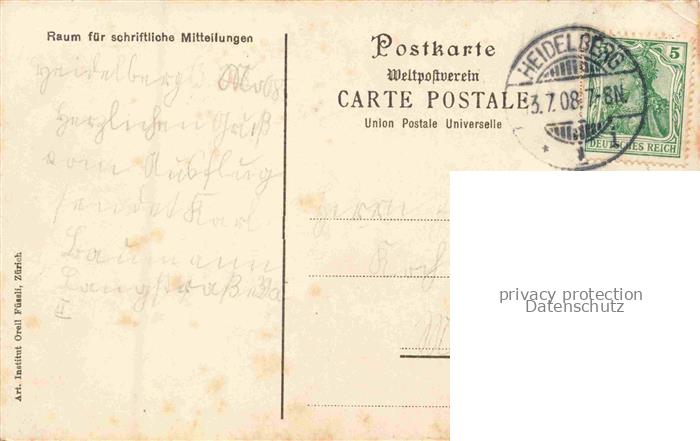 Raum für schriftliche Mitteilungen
Heidelberg
Herzlichen Gruß
vom Ausflug
sendet Karl
Baumann
Langstraße
III
Art. Institut Orell Füssli, Zürich
Postkarte
Weltpostverein
CARTE POSTALE
Union Postale Universelle
HEIDELBERG
3.7.08.7-8N.
* 1 i
5
DEUTSCHES REICH
Herrn
Koch
privacy protection
Datenschutz